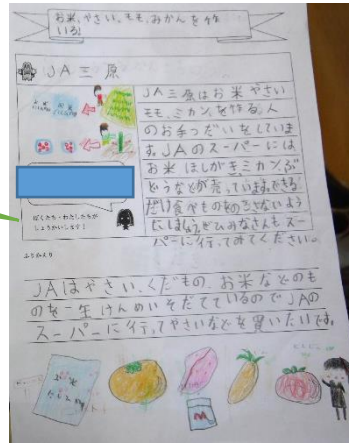 お米、やさい、もも、みかんを作
いる!
JA三原
JA三原はお米やさい
モモ、ミカンを作る人
のお手つだいをしていま
す。JAのスーパーには
お米ほしがきミカンぶ
どうなどが売っています。できる
だけ食べものをのこさないよう
にしましょう。ぜひみなさんもスー
パーに行ってみてください。
ぼくたち・わたしたちが
しょうかいします!
ふりかえり
JAはやさい、くだもの、お米などのも
のを一生けんめいそだてているのでJAの
スーパーに行ってやさいなどを買いたいです。
お米